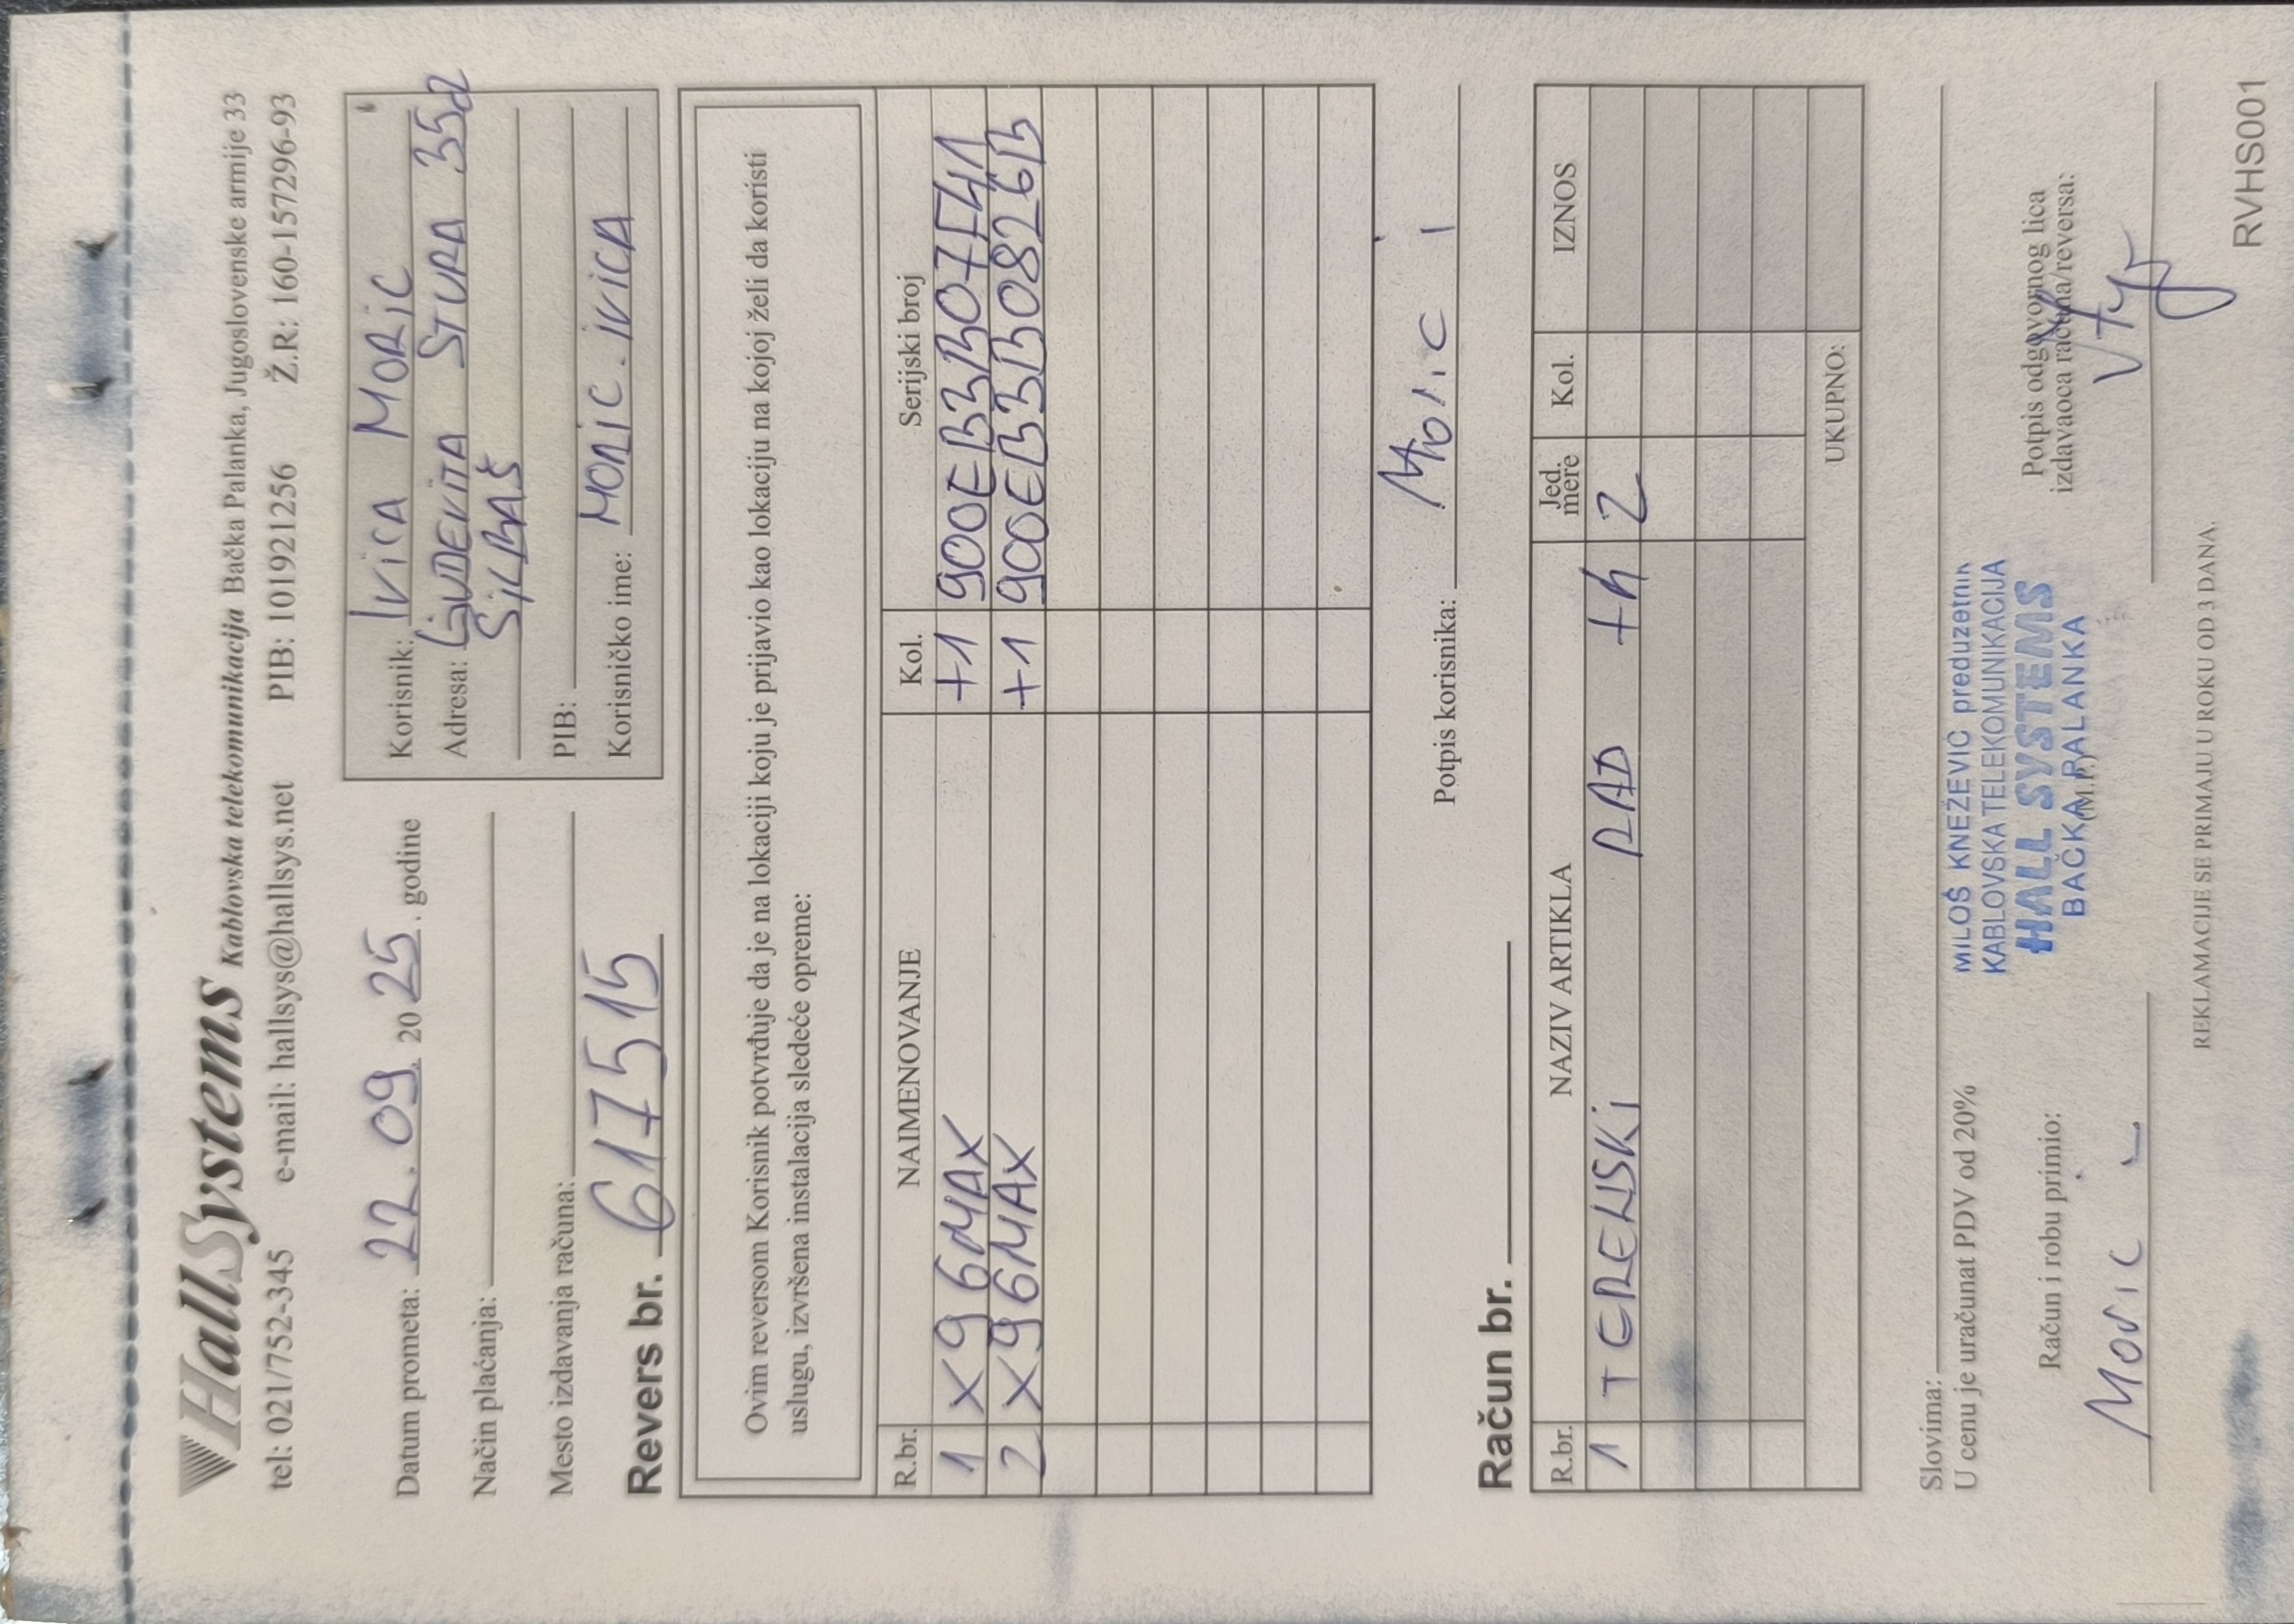 HallSystems Kablovska telekomunikacija Bačka Palanka, Jugoslovenske armije 33
tel: 021/752-345 e-mail: hallsys@hallsys.net PIB: 101921256 Ž.R: 160-157296-93
Datum prometa: 22.09. 2025. godine
Način plaćanja:
Mesto izdavanja računa:
Revers br. 617515
Korisnik: IVICA MORIC
Adresa: ĽUDEVITA STURA 35a
SILBAŠ
PIB:
Korisničko ime: MORIC.IVICA
Ovim reversom Korisnik potvrđuje da je na lokaciji koju je prijavio kao lokaciju na kojoj želi da koristi
uslugu, izvršena instalacija sledeće opreme:
R.br. NAIMENOVANJE Kol. Serijski broj
1 X96MAX +1 900EB3B07F41
2 X96MAX +1 900EB3B0826B
Potpis korisnika: Moric I
Račun br.
R.br. NAZIV ARTIKLA Jed. mere Kol. IZNOS
1 TERENSKI RAD +h 2
UKUPNO:
Slovima:
U cenu je uračunat PDV od 20%
MILOŠ KNEŽEVIĆ preduzetnik
KABLOVSKA TELEKOMUNIKACIJA
HALL SYSTEMS
BAČKA PALANKA
(M.P.)
Račun i robu primio:
Moric
Potpis odgovornog lica
izdavaoca računa/reversa:
REKLAMACIJE SE PRIMAJU U ROKU OD 3 DANA.
RVHS001